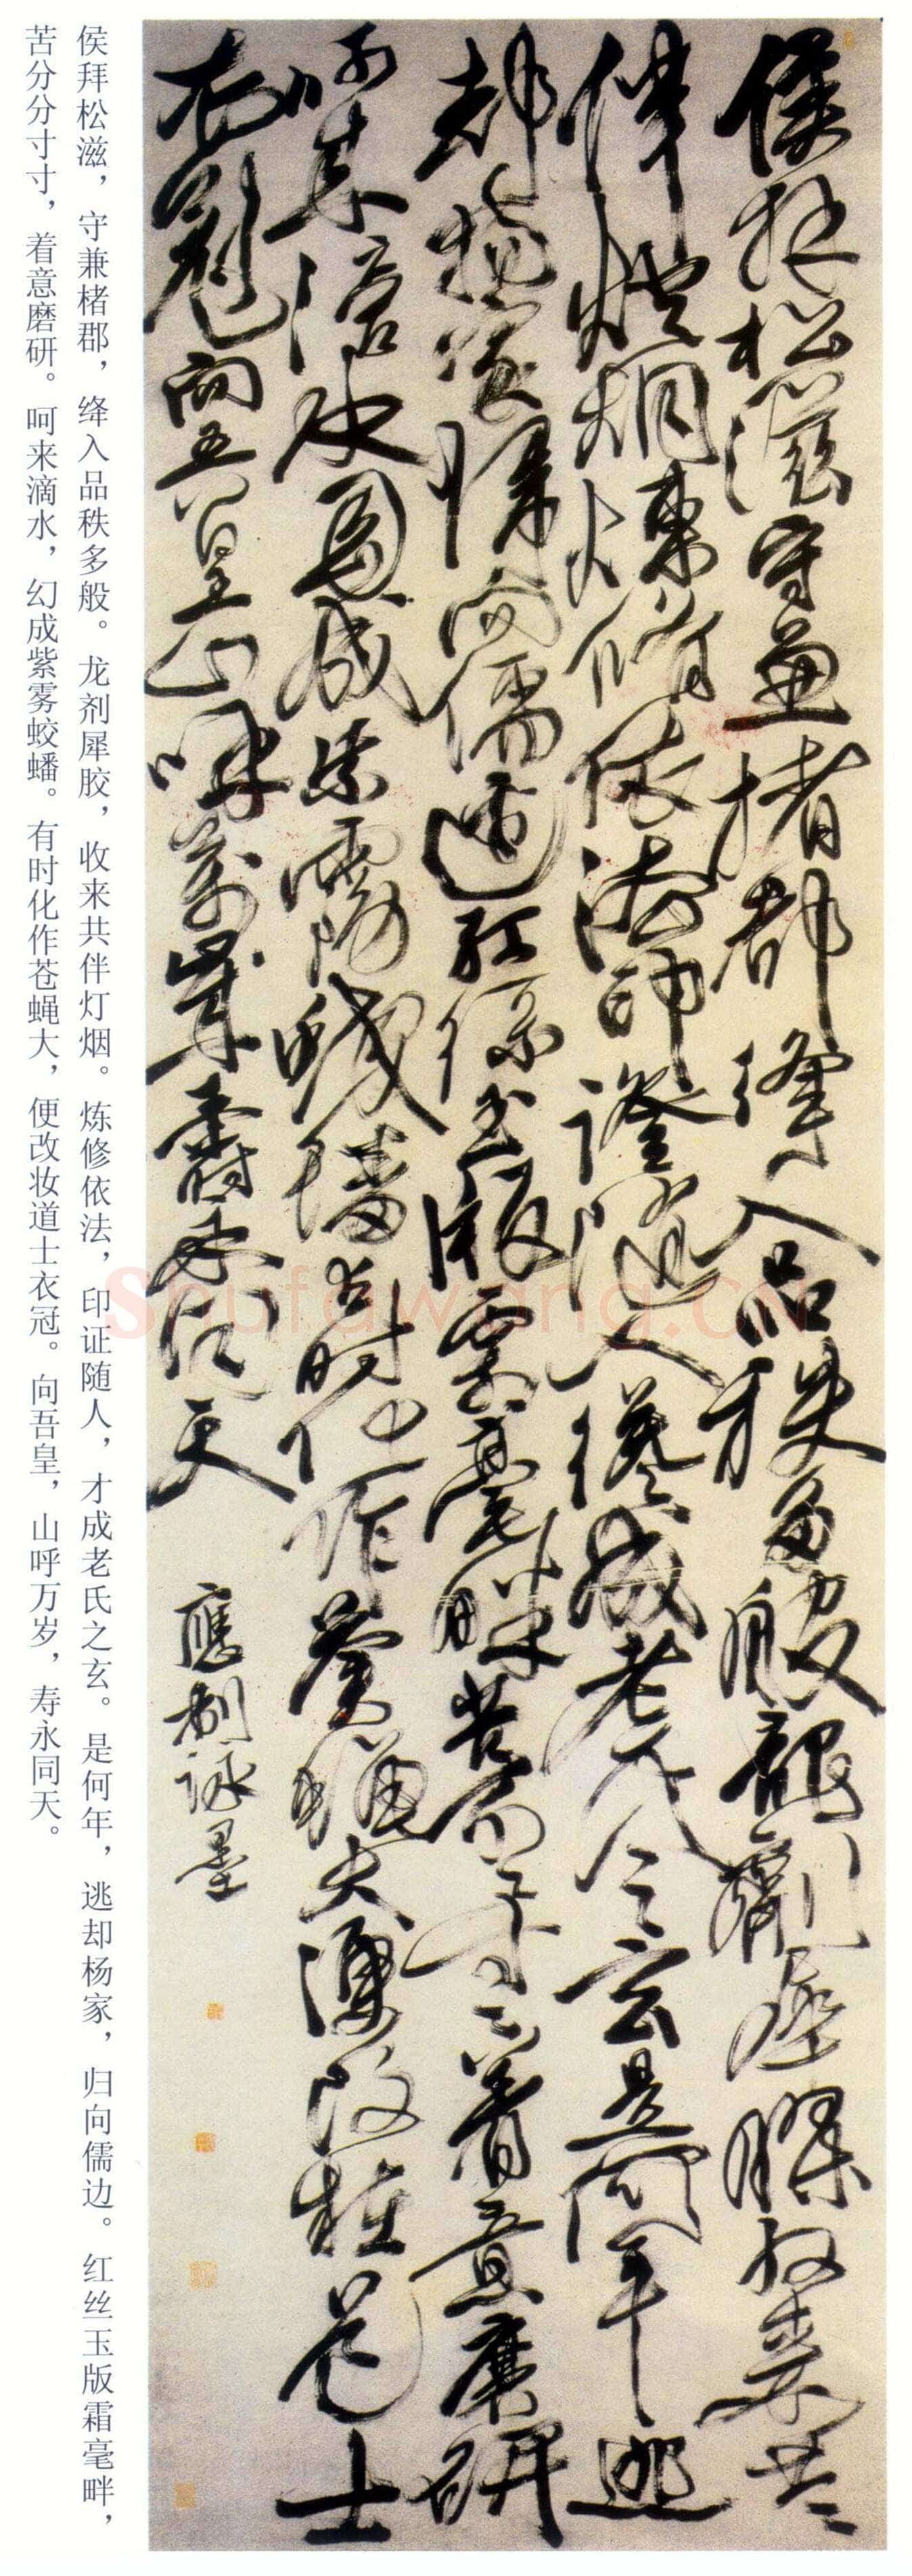 侯拜松滋守兼楮郡絳入品秩多般龍劑犀膠收來共
伴燈烟煉修依法印證隨人纔成老氏之玄是何年逃
却楊家歸向儒邊紅絲玉版霜毫畔苦分分寸寸着意磨研
呵來滴水幻成紫霧蛟蟠有時化作蒼蠅大便改粧道士
衣冠向吾皇山呼萬歲壽永同天
應制詠墨
侯拜松滋，守兼楮郡，绛入品秩多般。龙剂犀胶，收来共伴灯烟。炼修依法，印证随人，才成老氏之玄。是何年，逃却杨家，归向儒边。红丝玉版霜毫畔，
苦分分寸寸，着意磨研。呵来滴水，幻成紫雾蛟蟠。有时化作苍蝇大，便改妆道士衣冠。向吾皇，山呼万岁，寿永同天。
Shufawang.CN